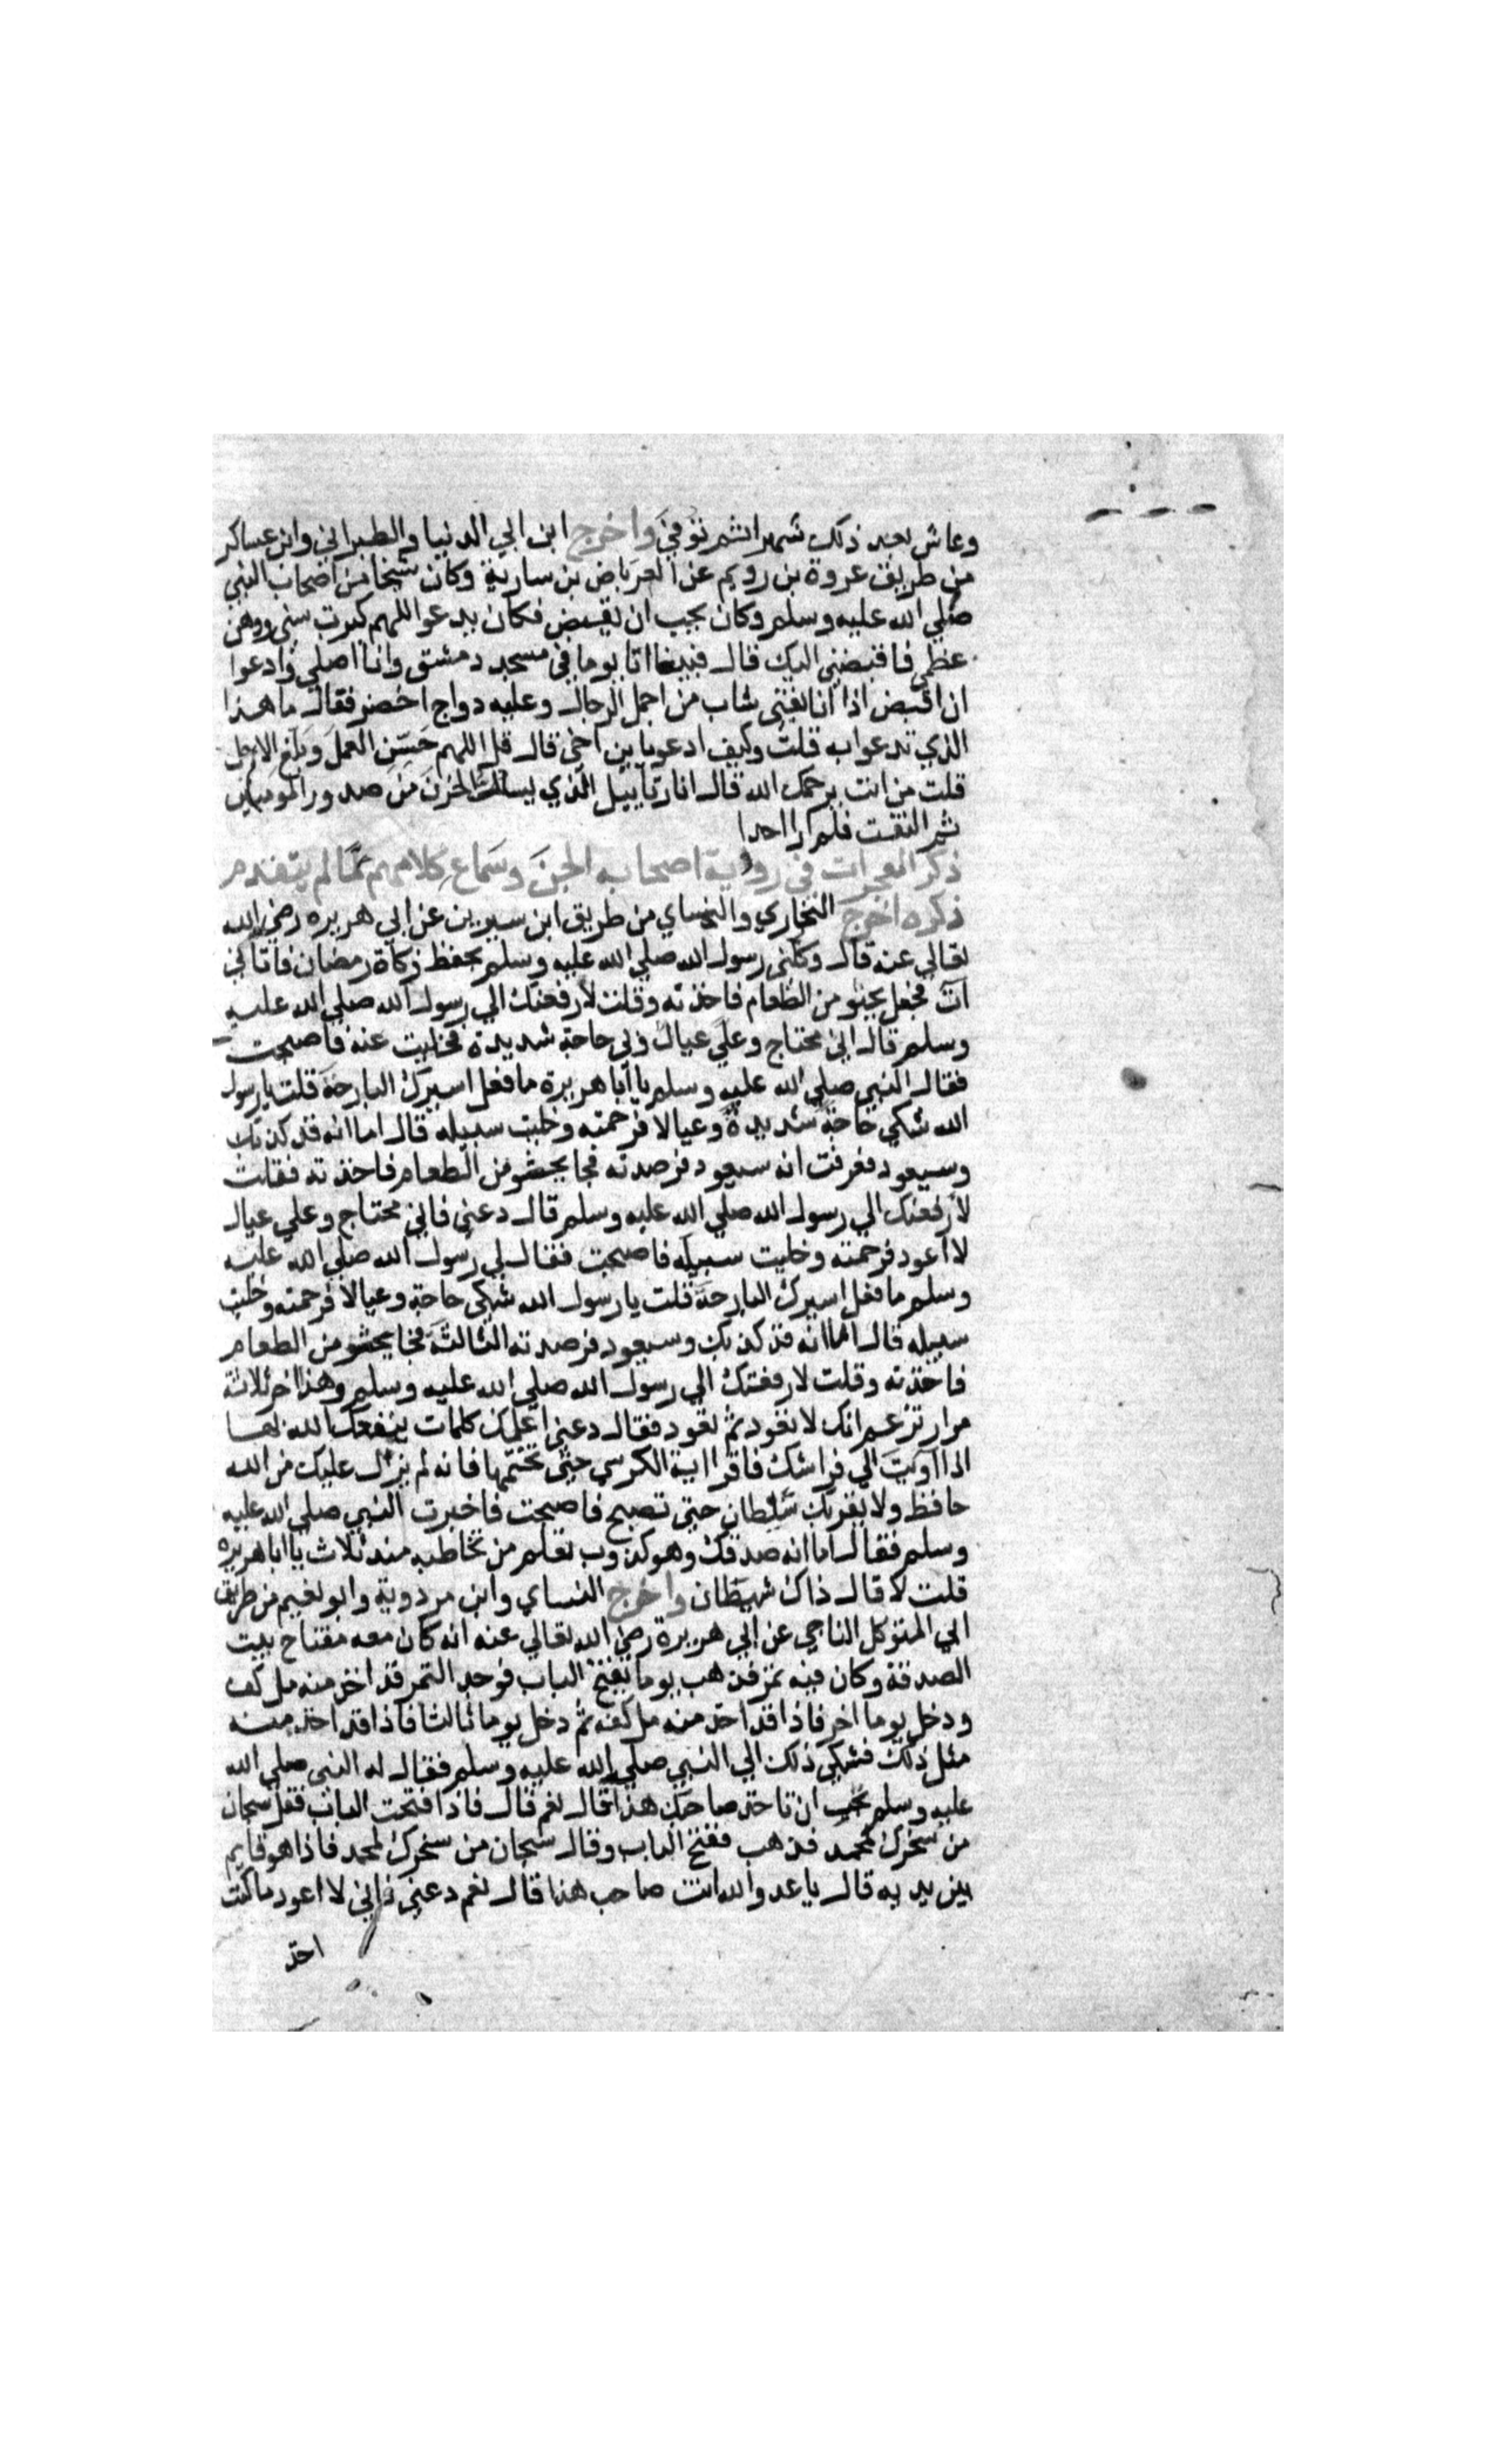 وعاش بعد ذلك شهرا ثم توفي واخرج ابن ابي الدنيا والطبراني وابن عساكر
من طريق عروة بن رويم عن العرباض بن سارية وكان شيخا من اصحاب النبي
صلي الله عليه وسلم وكان يحب ان يقبض فكان يدعو اللهم كبرت سني ووهن
عظمي فاقبضني اليك قال فبينما انا يوما في مسجد دمشق وانا اصلي وادعوا
ان اقبض اذا انا بفتى شاب من اجمل الرجال وعليه دواج اخضر فقال ما هذا
الذي تدعوا به قلت وكيف ادعو يا بن اخي قال قل اللهم حَسّن العمل وبلغ الاجل
قلت من انت يرحمك الله قال انا رتاييل الذي يسلت الحزن من صدور المومنين
ثم التفت فلم ار احدا
ذكر المعجزات في روية اصحابه الجن وسماع كلامهم مما لم يتقدم
ذكره اخرج البخاري والنساي من طريق ابن سيرين عن ابي هريره رضي الله
تعالي عنه قال وكلني رسول الله صلي الله عليه وسلم بحفظ زكاة رمضان فاتاني
آت فجعل يحثو من الطعام فاخذته وقلت لارفعنك الي رسول الله صلي الله عليه
وسلم قال اني محتاج وعلي عيال ولي حاجة شديدة فخليت عنه فاصبحت
فقال النبي صلي الله عليه وسلم يا ابا هريرة ما فعل اسيرك البارحة قلت يا رسول
الله شكي حاجة شديدة وعيالا فرحمته وخليت سبيله قال اما انه قد كذبك
وسيعود فعرفت انه سيعود فرصدته فجا يحثو من الطعام فاخذته فقلت
لارفعنك الي رسول الله صلي الله عليه وسلم قال دعني فاني محتاج وعلي عيال
لا اعود فرحمته وخليت سبيله فاصبحت فقال لي رسول الله صلي الله عليه
وسلم ما فعل اسيرك البارحة قلت يا رسول الله شكي حاجة وعيالا فرحمته وخليت
سبيله قال اما انه قد كذبك وسيعود فرصدته الثالثة فجا يحثو من الطعام
فاخذته وقلت لارفعنك الي رسول الله صلي الله عليه وسلم وهذا اخر ثلاثة
مرار تزعم انك لا تعود ثم تعود فقال دعني اعلمك كلمات ينفعك الله بها
اذا آويت الي فراشك فاقرا اية الكرسي حتى تختمها فانه لم يزل عليك من الله
حافظ ولا يقربك شيطان حتى تصبح فاصبحت فاخبرت النبي صلي الله عليه
وسلم فقال اما انه صدقك وهو كذوب تعلم من تخاطبه منذ ثلاث يا ابا هريره
قلت لا قال ذاك شيطان واخرج النساي وابن مردوية وابو نعيم من طريق
ابي المتوكل الناجي عن ابي هريرة رضي الله تعالي عنه انه كان معه مفتاح بيت
الصدقة وكان فيه تمر فذهب يوما يفتح الباب فوجد التمر قد اخذ منه مل كف
ودخل يوما اخر فاذا قد اخذ منه مل كف ثم دخل يوما ثالثا فاذا قد اخذ منه
مثل ذلك فشكي ذلك الي النبي صلي الله عليه وسلم فقال له النبي صلي الله
عليه وسلم تحب ان تاخذ صاحبك هذا قال نعم قال فاذا فتحت الباب فقل سبحان
من سخرك لمحمد فذهب ففتح الباب وقال سبحان من سخرك لمحمد فاذا هو قايم
بين يديه قال يا عدو الله انت صاحب هذا قال نعم دعني فاني لا اعود ما كنت
اخذ